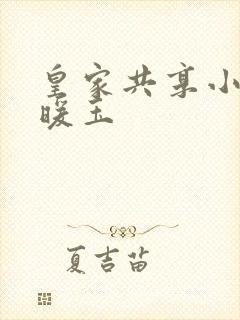 皇家共享小
暖玉
夏吉苗